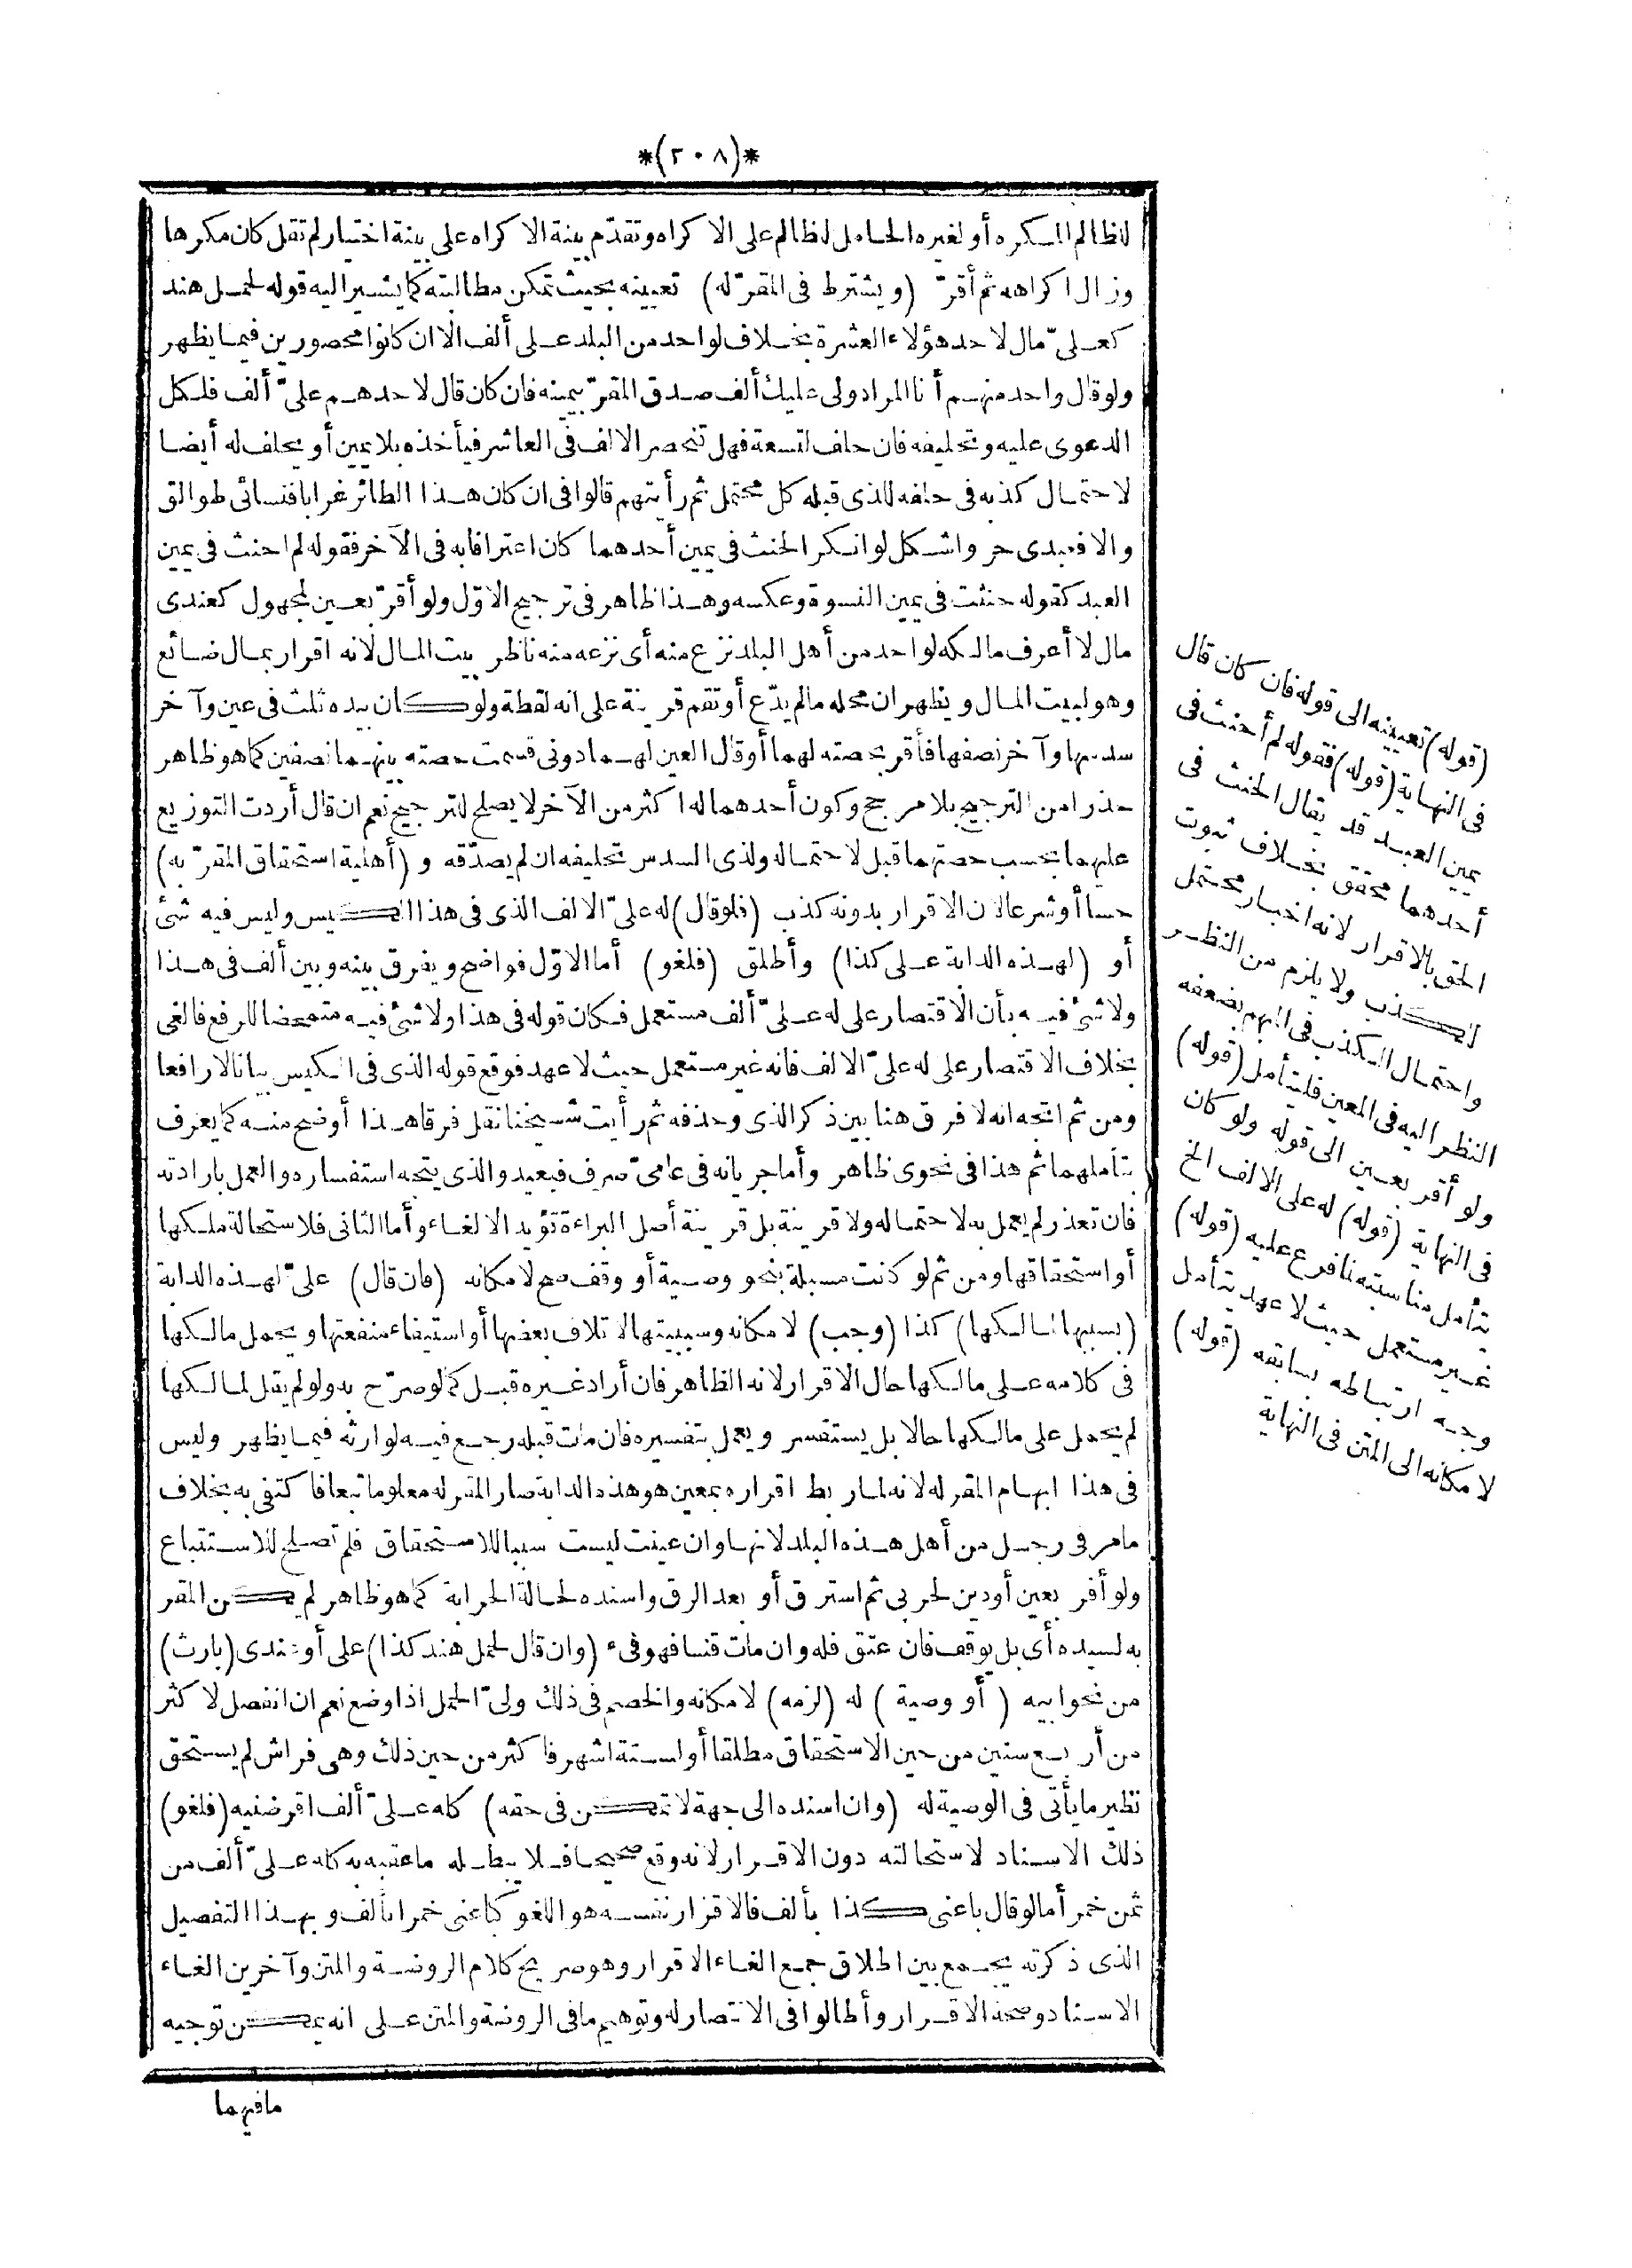 *(٢٠٨)*
لظالم المكره أو لغيره الحامل لظالم على الاكراه وتقدّم بينة الاكراه على بينة اختيار لم تقل كان مكرها
وزال اكراهه ثم أقرّ (ويشترط فى المقرّ له) تعيينه بحيث تمكن مطالبته كما يشير اليه قوله لحمل هند
كعلىّ مال لاحد هؤلاء العشرة بخلاف لواحد من البلد على ألف الا ان كانوا محصورين فيما يظهر
ولو قال واحد منهم أنا المراد ولى عليك ألف صدق المقرّ بيمينه فان كان قال لاحدهم علىّ ألف فلكل
الدعوى عليه وتحليفه فان حلف لتسعة فهل تنحصر الالف فى العاشر فيأخذه بلا يمين أو يحلف له أيضا
لاحتمال كذبه فى حلفه للذى قبله كل محتمل ثم رأيتهم قالوا فى ان كان هذا الطائر غرابا فنسائى طوالق
والا فعبدى حر واشكل لو انكر الحنث فى يمين أحدهما كان اعترافا به فى الآخر فقوله لم احنث فى يمين
العبد كقوله حنثت فى يمين النسوة وعكسه وهذا ظاهر فى ترجيح الاوّل ولو أقرّ بعين لمجهول كعندى
مال لا أعرف مالكه لواحد من أهل البلد نزع منه أى نزعه منه ناظر بيت المال لانه اقرار بمال ضائع
وهو لبيت المال ويظهر ان محله ما لم يدّع أو تقم قرينة على انه لقطة ولو كان بيده ثلث فى عين وآخر
سدسها وآخر نصفها فأقر بحصته لهما أو قال العين لهما دونى قسمت حصته بينهما نصفين كما هو ظاهر
حذرا من الترجيح بلا مرجح وكون أحدهما له اكثر من الآخر لا يصلح للترجيح نعم ان قال أردت التوزيع
عليهما بحسب حصتهما قبل لاحتماله ولذى السدس تحليفه ان لم يصدّقه و (أهلية استحقاق المقرّ به)
حسا أو شرعا لان الاقرار بدونه كذب (فلو قال) له علىّ الالف الذى فى هذا الكيس وليس فيه شئ
أو (لهذه الدابة على كذا) وأطلق (فلغو) أما الاوّل فواضح ويفرق بينه وبين ألف فى هذا
ولا شئ فيه بأن الاقتصار على له علىّ ألف مستعمل فكان قوله فى هذا ولا شئ فيه متمحضا للرفع فالغى
بخلاف الاقتصار على له علىّ الالف فانه غير مستعمل حيث لا عهد فوقع قوله الذى فى الكيس بيانا لا رافعا
ومن ثم اتجه انه لا فرق هنا بين ذكر الذى وحذفه ثم رأيت شيخنا نقل فرقا هذا أوضح منه كما يعرف
بتأملهما ثم هذا فى نحوى ظاهر وأما جريانه فى عامىّ صرف فبعيد والذى يتجه استفساره والعمل بارادته
فان تعذر لم يعمل به لاحتماله ولا قرينة بل قرينة أصل البراءة تؤيد الالغاء وأما الثانى فلاستحالة ملكها
أو استحقاقها ومن ثم لو كانت مسبلة بنحو وصية أو وقف صح لامكانه (فان قال) علىّ لهذه الدابة
(بسببها لمالكها) كذا (وجب) لامكانه وسببيتها لاتلاف بعضها أو استيفاء منفعتها ويحمل مالكها
فى كلامه على مالكها حال الاقرار لانه الظاهر فان أراد غيره قبل كما لو صرّح به ولو لم يقل لمالكها
لم يحمل على مالكها حالا بل يستفسر ويعمل بتفسيره فان مات قبله رجع فيه لوارثه فيما يظهر وليس
فى هذا ابهام المقر له لانه لما ربط اقراره بمعين هو هذه الدابة صار المقر له معلوما تبعا فاكتفى به بخلاف
ما مر فى رجل من أهل هذه البلد لانها وان عينت ليست سببا للاستحقاق فلم تصلح للاستتباع
ولو أقر بعين أو دين لحربى ثم استرق أو بعد الرق واسنده لحالة الحرابة كما هو ظاهر لم يكن المقر
به لسيده أى بل يوقف فان عتق فله وان مات قنا فهو فىء (وان قال لحمل هند كذا) على أو عندى (بارث)
من نحو ابيه (أو وصية) له (لزمه) لامكانه والخصم فى ذلك ولىّ الحمل اذا وضع نعم ان انفصل لاكثر
من أربع سنين من حين الاستحقاق مطلقا أو لستة اشهر فاكثر من حين ذلك وهى فراش لم يستحق
نظير ما يأتى فى الوصية له (وان اسنده الى جهة لا تمكن فى حقه) كله علىّ ألف اقرضنيه (فلغو)
ذلك الاسناد لاستحالته دون الاقرار لانه وقع صحيحا فلا يبطله ما عقبه به كله علىّ ألف من
ثمن خمر أما لو قال باعنى كذا بألف فالاقرار نفسه هو اللغو كباعنى خمرا بألف وبهذا التفصيل
الذى ذكرته يجمع بين اطلاق جمع الغاء الاقرار وهو صريح كلام الروضة والمتن وآخرين الغاء
الاسناد وصحة الاقرار وأطالوا فى الانتصار له وتوهيم ما فى الروضة والمتن على انه يمكن توجيه
ما فيهما
(قوله) تعيينه الى قوله فان كان قال
فى النهاية (قوله) فقوله لم أحنث فى
يمين العبد قد يقال الحنث فى
أحدهما محقق بخلاف ثبوت
الحق بالاقرار لانه اخبار محتمل
الكذب ولا يلزم من النظر
واحتمال الكذب فى المبهم بضعفه
النظر اليه فى المعين فليتأمل (قوله)
ولو أقر بعين الى قوله ولو كان
فى النهاية (قوله) له على الالف الخ
يتأمل مناسبته لما فرع عليه (قوله)
غير مستعمل حيث لا عهد يتأمل
وجه ارتباطه بسابقه (قوله)
لامكانه الى المتن فى النهاية